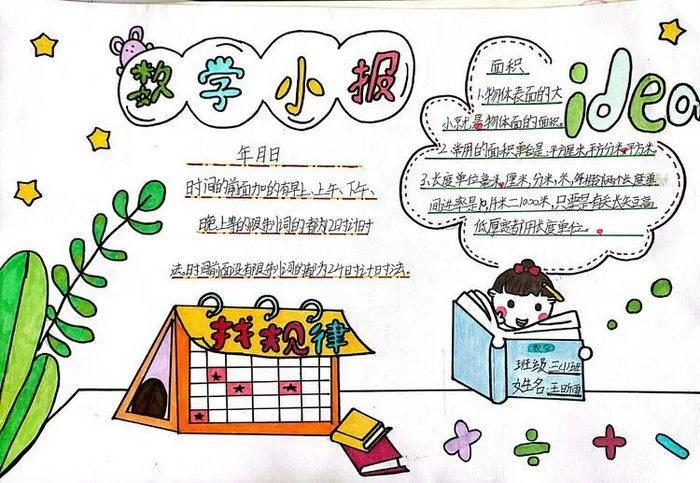 数学小报
idea
面积
1.物体表面的大
小就是物体面的面积。
2.常用的面积单位是,平方厘米,平方分米,平方米
3.长度单位毫米,厘米,分米,米,每相邻两个长度单
间进率是10,1千米=1000米,只要是有关长短高
低厚薄都用长度单位。
年月日
时间的前面加的有早上、上午、下午、
晚上等的限制词的都为12时计时
法。时间前面没有限制词的都为24时计时计时法。
找规律
数学
班级:三(4)班
姓名:王
× ÷ + -